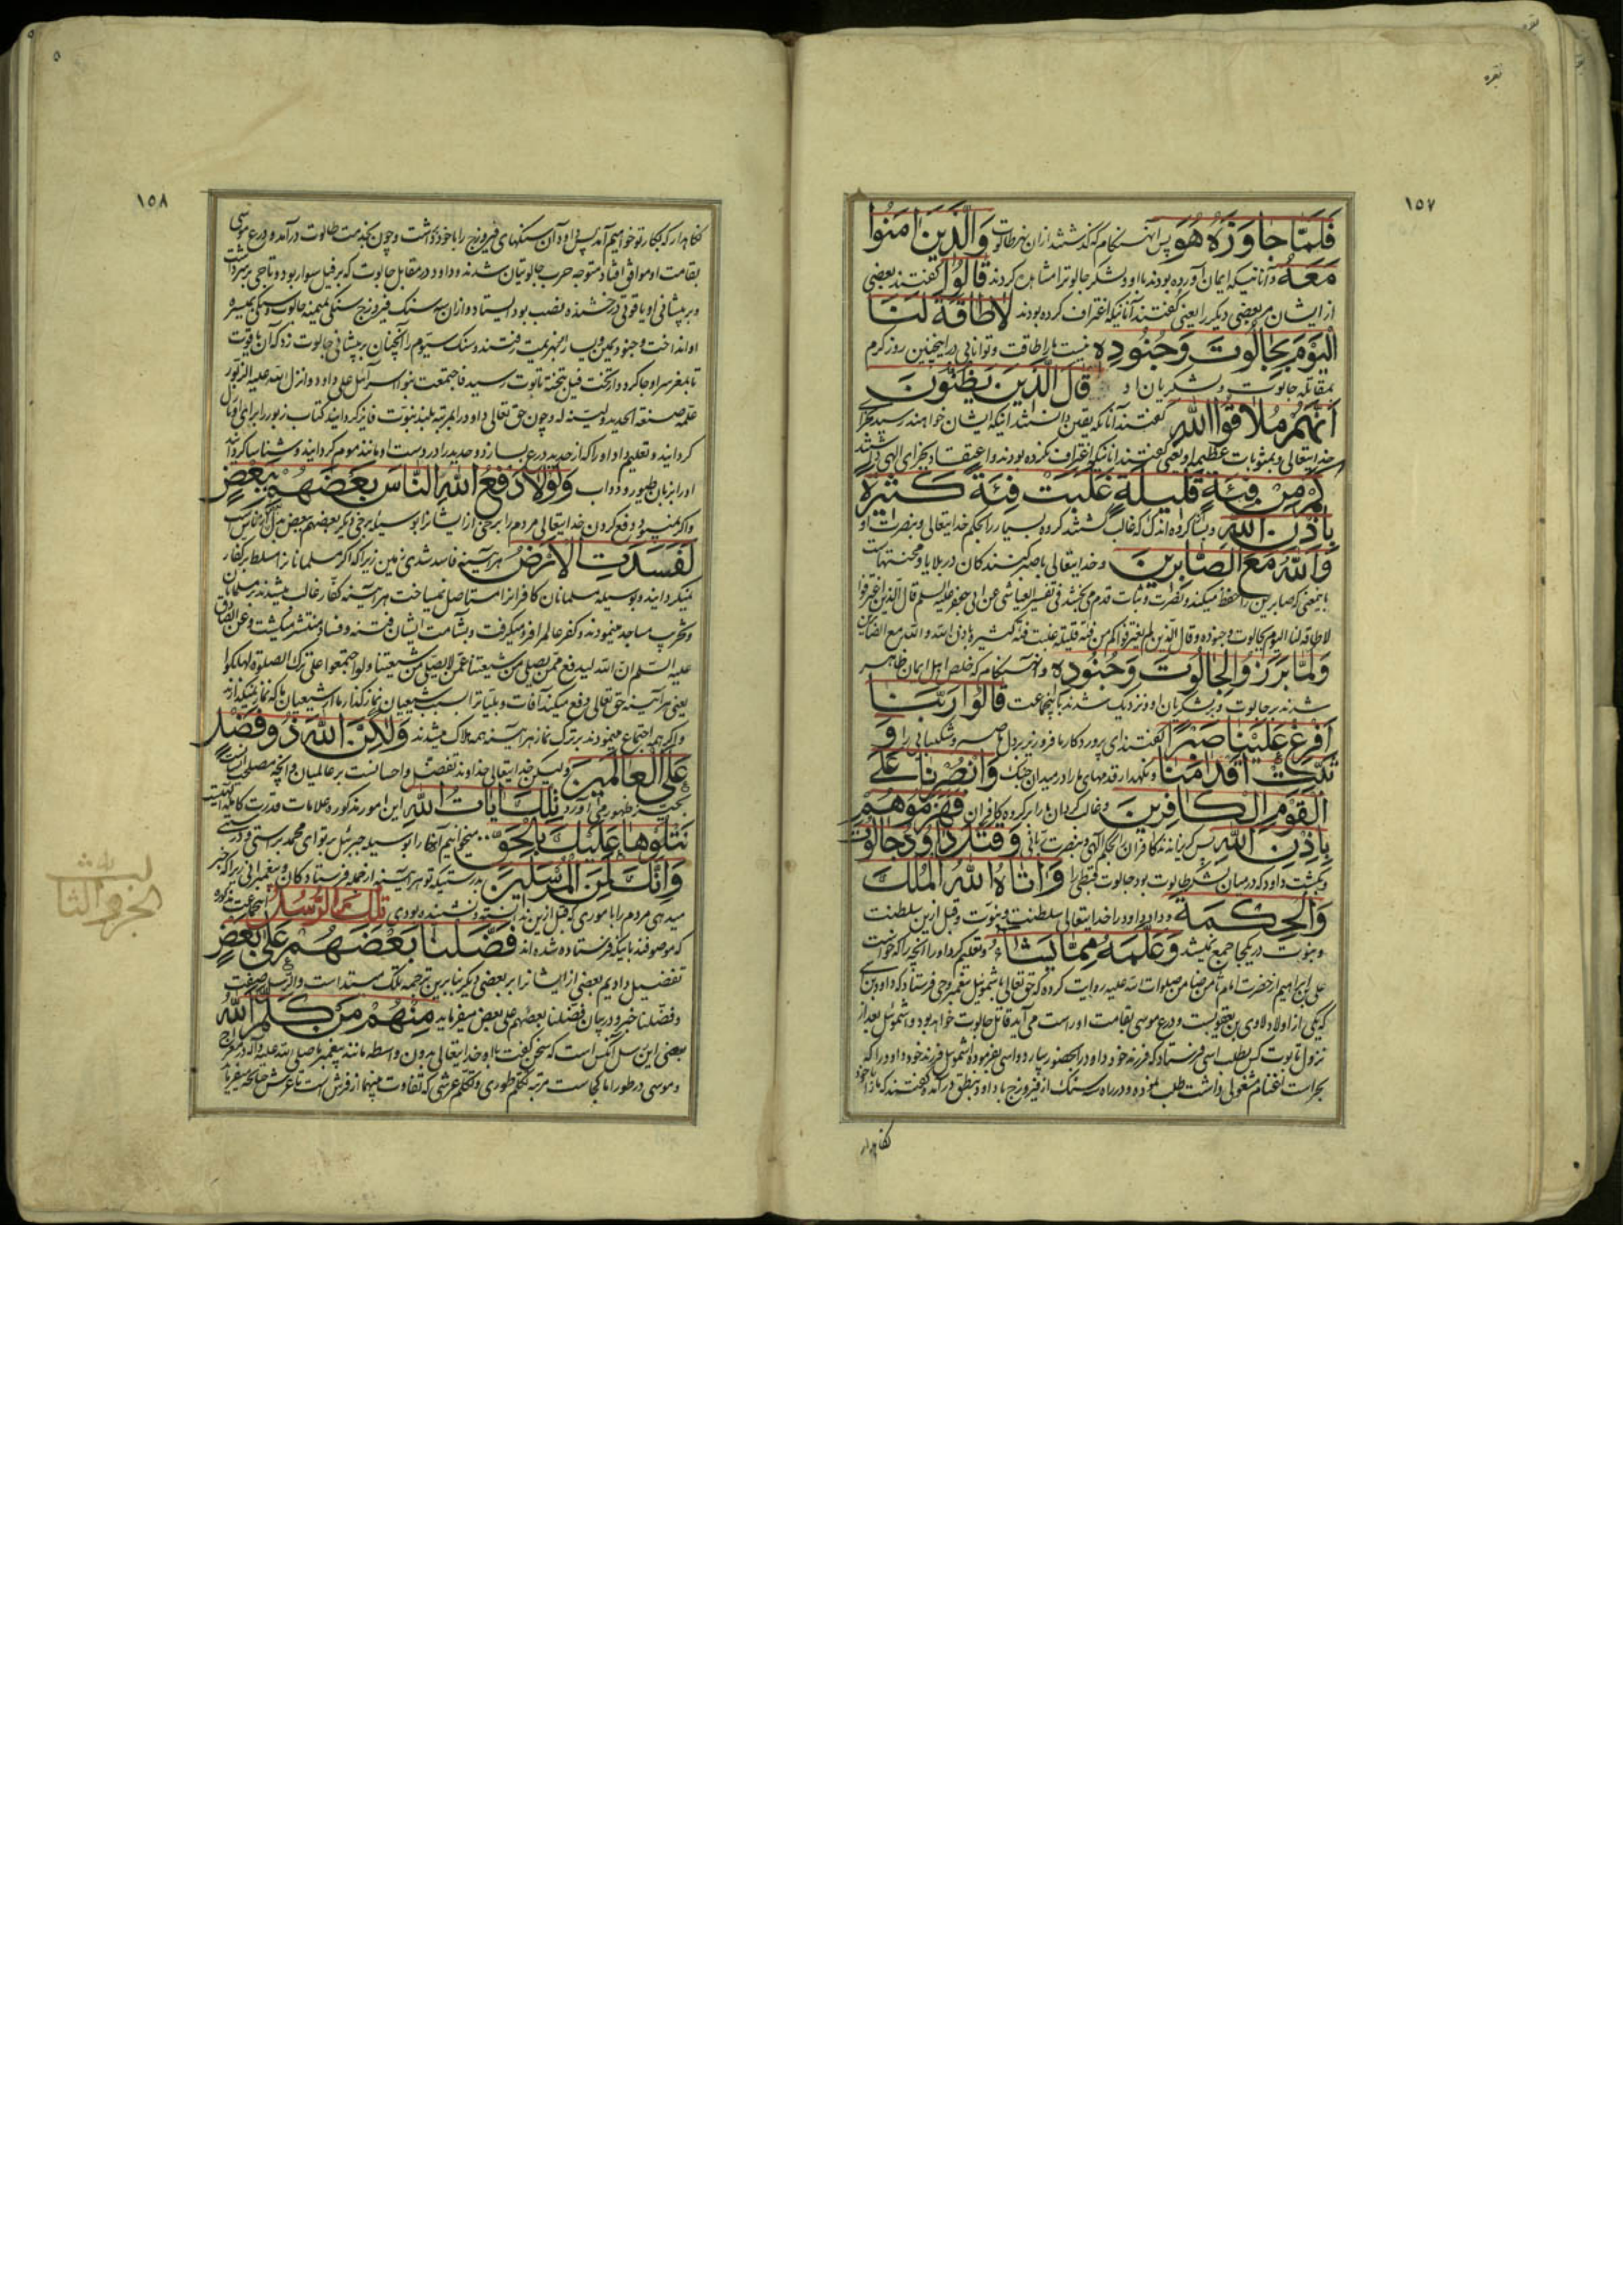 بقره
١٥٧
فَلَمَّا جَاوَزَهُ هُوَ پس آنهنگام که گذشتند از آن نهر طالوت وَالَّذِينَ آمَنُوا
مَعَهُ و آنانیکه ایمان آورده بودند با او و لشکر جالوترا مشاهده کردند قَالُوا گفتند بعضی
از ایشان مر بعضی دیگر را یعنی گفتند آنانیکه اغتراف کرده بودند لَا طَاقَةَ لَنَا
الْيَوْمَ بِجَالُوتَ وَجُنُودِهِ نیست ما را طاقت و توانایی در اینچنین روز گرم
بمقاتله جالوت و لشکریان او قَالَ الَّذِينَ يَظُنُّونَ
أَنَّهُمْ مُلَاقُوا اللَّهِ گفتند آنانکه یقین دانستند آنیکه ایشان خواهند رسید بجزای
خدایتعالی و بمثوبات عظیمه او یعنی گفتند آنانیکه اغتراف نکرده بودند و اعتقاد بجزای الهی داشتند
كَمْ مِنْ فِئَةٍ قَلِيلَةٍ غَلَبَتْ فِئَةً كَثِيرَةً
بِإِذْنِ اللَّهِ و بسا گروه اندک که غالب گشتند گروه بسیار را بحکم خدایتعالی و بنصرت او
وَاللَّهُ مَعَ الصَّابِرِينَ و خدایتعالی با صبر کنندگان در بلایا و محنتهاست
باینمعنی که صابرین را حفظ میکند و نصرت و ثبات قدم می بخشد فی تفسیر العیاشی عن ابی جعفر علیه السلم قال الذین اغترفوا
لا طاقة لنا الیوم بجالوت و جنوده و قال الذین لم یغترفوا کم من فئة قلیلة غلبت فئة کثیرة باذن الله و الله مع الصابرین
وَلَمَّا بَرَزُوا لِجَالُوتَ وَجُنُودِهِ و آنهنگام که خلص اهل ایمان ظاهر
شدند بر جالوت و بر لشکریان او و نزدیک شدند بآنجماعت قَالُوا رَبَّنَا
أَفْرِغْ عَلَيْنَا صَبْرًا گفتند ای پروردکار ما فرو ریز بر دل ما صبر و شکیبایی را وَ
ثَبِّتْ أَقْدَامَنَا و نگهدار قدمهای ما را در میدان جنک وَانْصُرْنَا عَلَى
الْقَوْمِ الْكَافِرِينَ و غالب گردان ما را بر گروه کافران فَهَزَمُوهُمْ
بِإِذْنِ اللَّهِ پس گریزانند کافران را بحکم الهی و بنصرت ربانی وَقَتَلَ دَاوُدُ جَالُوتَ
و بکشت داود که در میان لشکر طالوت بود جالوت قبطی را وَآتَاهُ اللَّهُ الْمُلْكَ
وَالْحِكْمَةَ و داد داود را خدایتعالی سلطنت و نبوت و قبل ازین سلطنت
و نبوت در یکجا جمع نمیشد وَعَلَّمَهُ مِمَّا يَشَاءُ و تعلیم کرد او را آنچه را که خواست
علی بن ابراهیم از حضرت امام ثامن ضامن صلوات الله علیه روایت کرده که حق تعالی باشموئیل پیغمبر وحی فرستاد که داود بن آسی
که یکی از اولاد لاوی بن یعقوبست و درع موسی بقامت او راست می آید قاتل جالوت خواهد بود و اشموئیل بعد از
نزول تابوت کس بطلب آسی فرستاد که فرزند خود داود را بحضور بیار د و آسی بفرموده اشموئیل فرزند خود داود را که
بحراست اغنام مشغولی داشت طلب نموده و در راه سه سنک از فیروزج با داود بنطق درآمده گفتند که ما را با خود
نگاه دار
١٥٨
نگاهدار که بکار تو خواهیم آمد پس داود آن سنکهای فیروزج را با خود داشت و چون بخدمت طالوت درآمد و درع موسی
بقامت او موافق افتاد متوجه حرب جالوتیان شدند و داود در مقابل جالوت که بر فیل سوار بود و تاجی بر سر داشت
و بر پیشانی او یاقوتی درخشنده نصب بود ایستاد و از آن سه سنک فیروزج سنکی بمیمنه جالوت و سنکی بمیسره
او انداخت و جنود یمین و یسار منهزم رفتند و سنک سیوم را آنچنان بر پیشانی جالوت زد که آن یاقوت
تا بمغز سر او جا کرد و از تخت فیل بتخته تابوت رسید فاجتمعت بنو اسرائیل علی داود و انزل الله علیه الزبور
علمه صنعة الحدید و لینه له و چون حق تعالی داود را بمرتبه بلند نبوت فایز گردانید کتاب زبور را برای او نازل
گردانید و تعلیم داد او را که از حدید درع بسازد و حدید را در دست او مانند موم گردانید و شناسا گردانید
او را بزبان طیور و دواب وَلَوْلَا دَفْعُ اللَّهِ النَّاسَ بَعْضَهُمْ بِبَعْضٍ
و اگر نمیبود دفع کردن خدایتعالی مردم را برخی از ایشانرا بوسیله برخی دیگر بعضهم ببعض بدل از ناس است
لَفَسَدَتِ الْأَرْضُ هر آینه فاسد شدی زمین زیرا که اگر مسلمانانرا مسلط بر کفار
نمیگردانید و بوسیله مسلمانان کافرانرا مستأصل نمیساخت هر آینه کفار غالب میشدند بر مسلمانان
و تخریب مساجد مینمودند و کفر عالم را فرو میگرفت و بشآمت ایشان فتنه و فساد منتشر میگشت و عن الصادق
علیه السلم ان الله لیدفع بمن یصلی من شیعتنا عمن لا یصلی من شیعتنا و لو اجتمعوا علی ترک الصلوة لهلکوا
یعنی هر آینه حق تعالی دفع میکند آفات و بلیاترا بسبب شیعیان نمازگذار ما از شیعیان ما که نماز نمیگذارند
و اگر همه اجتماع مینمودند بر ترک نماز هر آینه همه هلاک میشدند وَلَكِنَّ اللَّهَ ذُو فَضْلٍ
عَلَى الْعَالَمِينَ و لیکن خدایتعالی خداوند تفضل و احسانست بر عالمیان و آنچه مصلحت است
بحیز ظهور می آورد تِلْكَ آيَاتُ اللَّهِ این امور مذکوره علامات قدرت کامله الهیست
نَتْلُوهَا عَلَيْكَ بِالْحَقِّ میخوانیم آنها را بوسیله جبرئیل بر تو ای محمد براستی و درستی
وَإِنَّكَ لَمِنَ الْمُرْسَلِينَ بدرستیکه تو هر آینه از جمله فرستادکان و پیغمبرانی زیرا که خبر
میدهی مردم را با موری که قبل ازین ندانسته و نشنیده بودی تِلْكَ الرُّسُلُ آنجماعت مذکوره
که موصوفند باینکه فرستاده شده اند فَضَّلْنَا بَعْضَهُمْ عَلَى بَعْضٍ
تفضیل دادیم بعضی از ایشانرا بر بعضی دیگر بنابرین ترجمه تلک مبتداست و الرسل صفت
و فضلنا خبر و در بیان فضلنا بعضهم علی بعض میفرماید مِنْهُمْ مَنْ كَلَّمَ اللَّهُ
بعضی این رسل آنکس است که سخن گفت با او خدایتعالی بدون واسطه مانند پیغمبر ما صلی الله علیه و آله در معراج
و موسی در طور اما کجاست مرتبه تکلم طوری و تکلم عرشی که تفاوت مابینهما از فرش است تا عرش چنانچه میفرماید
الجزو الثالث